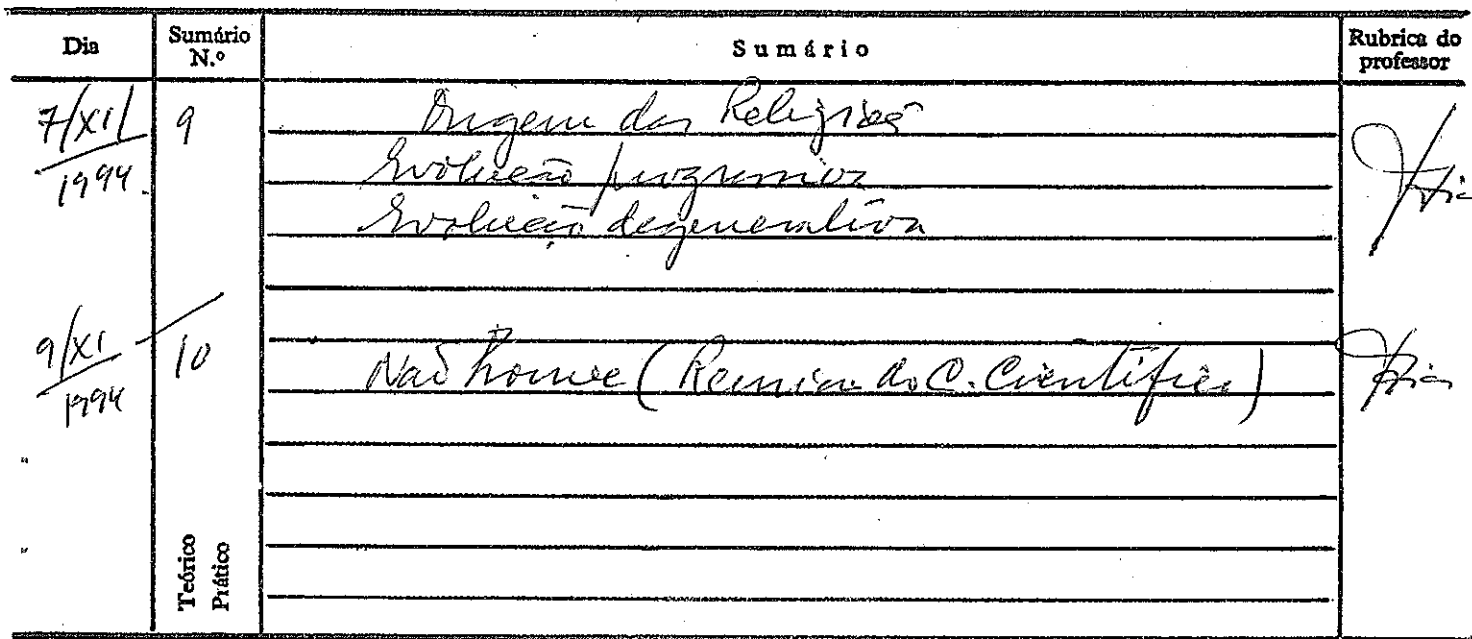 Dia Sumário N.º Sumário Rubrica do professor
7/XI/1994. 9 Origem das Religiões
Evolução progressiva
Evolução degenerativa
9/XI/1994 10 Não houve (Reunião do C. Científico)
"
"
Teórico
Prático